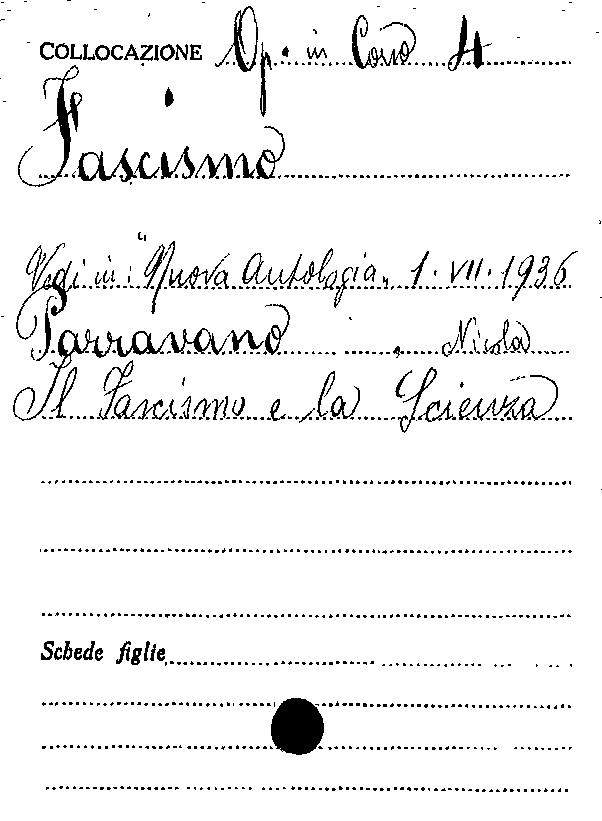 COLLOCAZIONE Op. in Corso 4
Fascismo
Vedi in: "Nuova Antologia„ 1. VII. 1936
Parravano , Nicola
Il Fascismo e la Scienza
Schede figlie